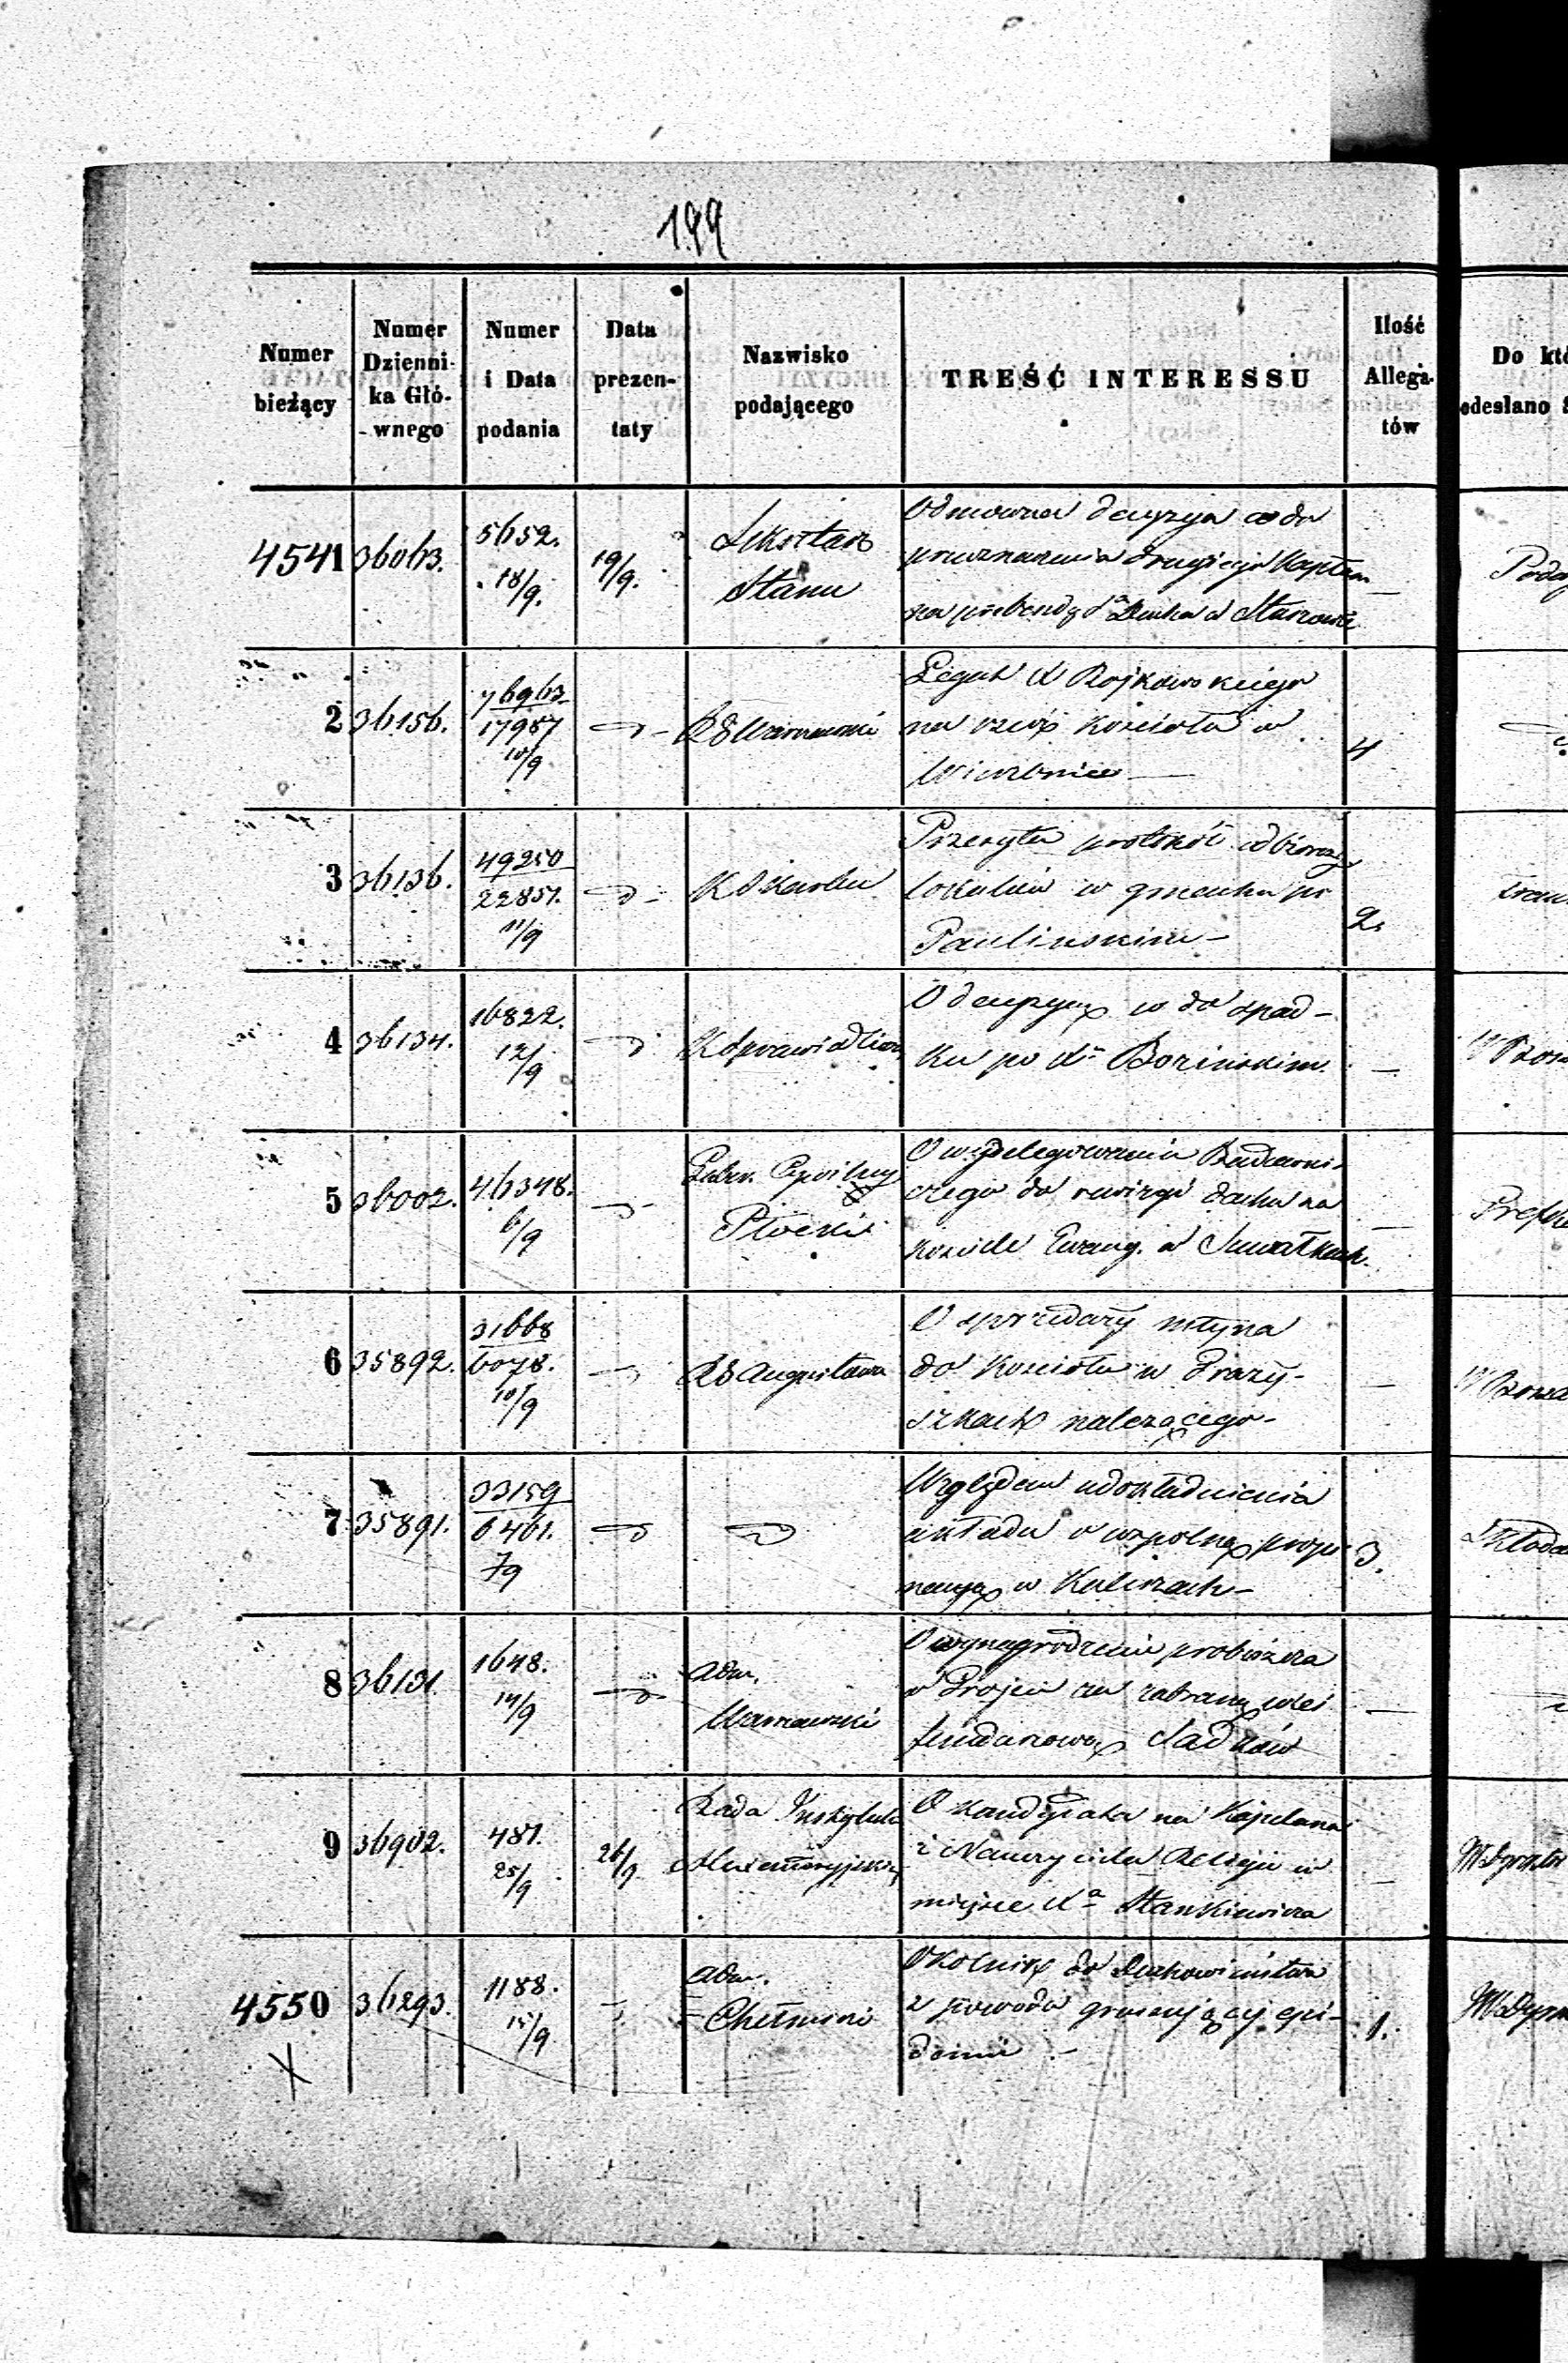 199
Numer bieżący
Numer Dzienni-ka Głó-wnego
Numer i Data podania
Data prezen-taty
Nazwisko podającego
TREŚĆ INTERESSU
Ilość Allega-tów
Do któ
odesłano
4541 36063. 5652. 18/9. 19/9. Sekretarz Stanu
Odmowna decyzya co do
przeznaczenia drugiego Kapłana
na prebendę Ducha w
2 36156. 76963/17987 10/9
Legat X Rojkowskiego
na rzecz Kościoła w
Wierzbnice
4
3 36136. 49250/22857. 11/9 K Skarbu
Przesyła protokół odbiorczy
lokalów w gmachu po
Paulińskim
2.
4 36134. 16822. 12/9 K Sprawiedliw
O decyzyą co do spad-
ku po Xs Bozińskim.
5 36002. 46348. 6/9 Gubern. Cywilny
Płocki
O wydelegowanie Budowni-
czego do rewizyi dachu na
kościele Ewang. w Suwałkach.
6 35892. 31668/6078. 10/9 RG Augustows
O sprzedaży młyna
do Kościoła w
szkach należącego
7 35891. 33159/6461. 7/9
Względem udokładnienia
układu o wspólną propi-
nacyą w Kaliszach
3.
8 36131 1648. 14/9 Adm.
Warszawski
O wynagrodzenie proboszcza
w za zabraną wieś
funduszową Sadków
9 36902. 487. 25/9 26/9 Rada Instytutu
O kandydata na Kapelana
i Nauczyciela Religii w
miejsce Xa Stankiewicza
4550 36293. 1188. 15/9 Adm.
Chełmski
Okólnik do Duchowieństwa
z powodu grasującej epi-
demii
1.